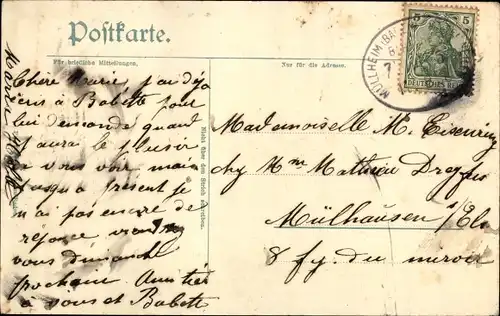 Postkarte.
Für briefliche Mitteilungen.
Nur für die Adresse.
5 5
DEUTSCHES REICH
MÜLLHEIM (BADEN)
Chère Marie j'ai déjà
à Babette pour
lui demande quand
j'aurai le plaisir
a vous voir, mais
jusqu'a present je
n'ai pas encore de
réponse
vous dimanche
prochain. Amitiés
à vous et Babette
Nicht über den Strich schreiben.
Mademoiselle M.
chz Mme Mathieu Dreyfus
Mülhausen i/Els
8 fg. du miroir